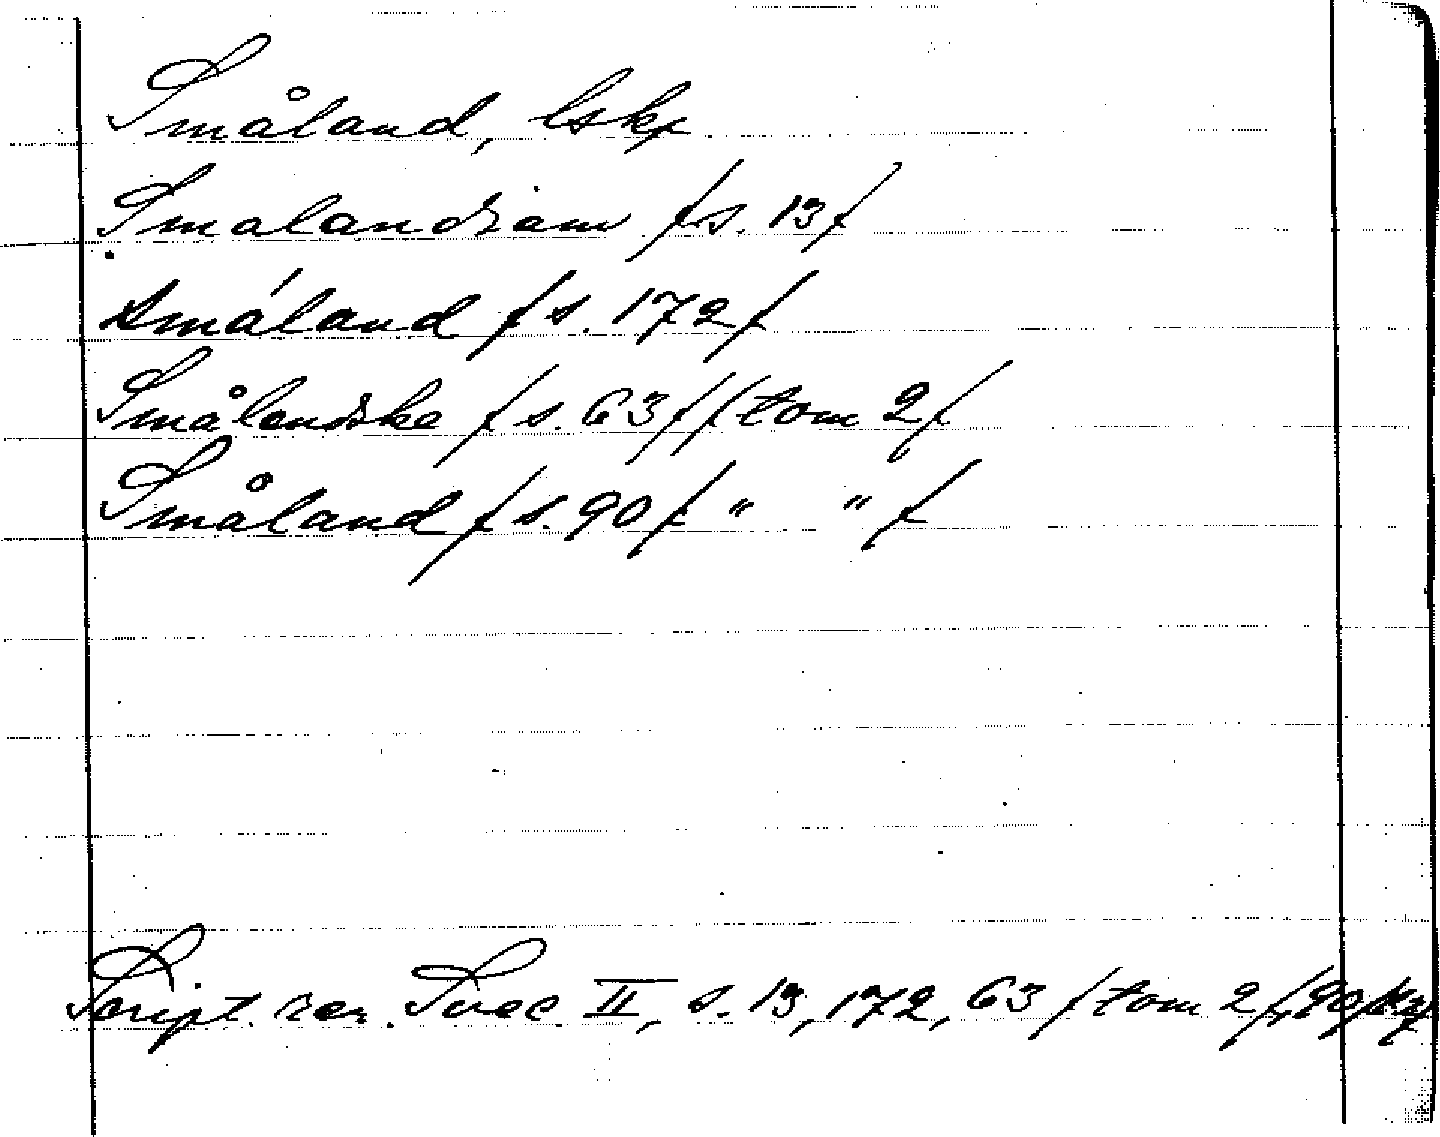 Småland, lskp
Smalandiam /s. 13/
småland /s. 172/
Småleniske /s. 63/ /tom 2/
Småland /s. 90/ " " /
Script. rer. Svec II, s. 13, 172, 63 /tom 2/, 90